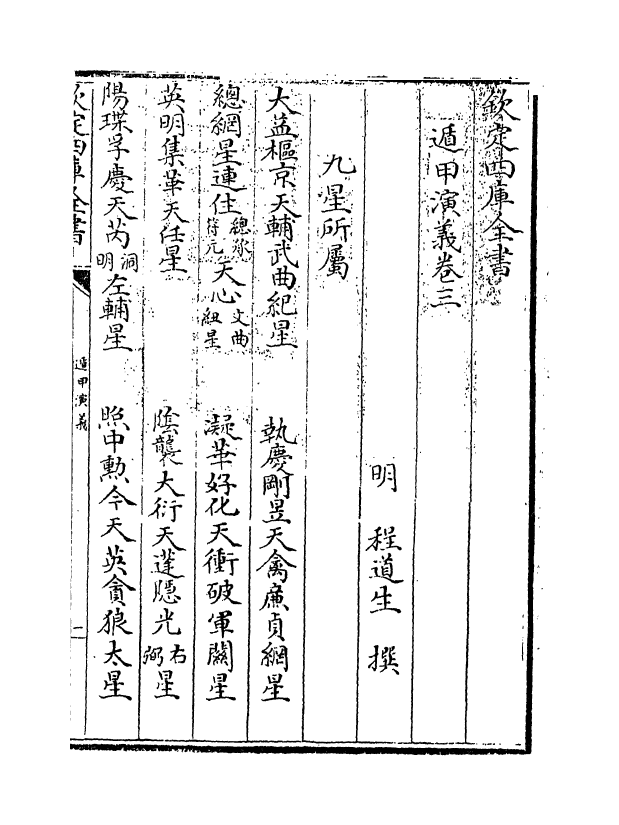 欽定四庫全書
遁甲演義卷三
明 程道生 撰
九星所屬
大益樞京天輔武曲紀星 執慶剛昱天禽廉貞綱星
總網星連住總承符元天心文曲紐星 凝華好化天衝破軍關星
英明集華天任星 陰襲大衍天蓬隱光右弼星
陽璞孚慶天芮洞明左輔星 照中勲令天英貪狼太星
欽定四庫全書
遁甲演義